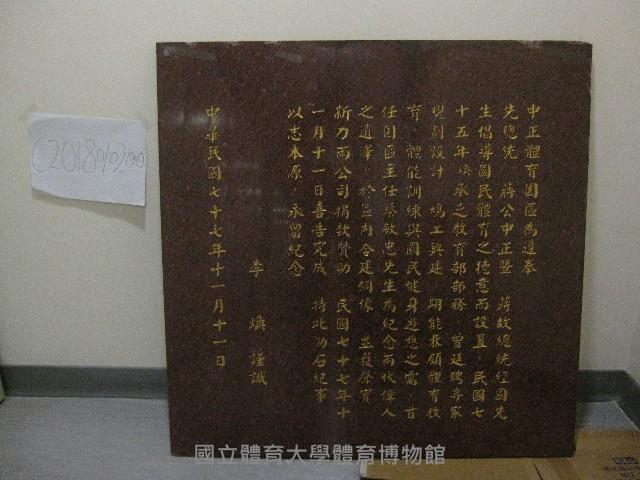 中正體育園區為遵奉
先總統 蔣公中正暨 蔣故總統經國先
生倡導國民體育之德意而設置，民國七
十五年煥承乏教育部部務 曾延聘專家
規劃設計，鳩工興建，期能兼顧體育教
育、體能訓練與國民健身遊憩之需，首
任園區主任蔡敏忠先生為紀念兩代偉人
之遺澤，於區內合建銅像 並獲
新力兩公司捐款贊助 民國七十七年十
一月十一日喜告完成 特此勒石紀事
以志本源，永留紀念
李 煥 謹誠
中華民國七十七年十一月十一日
C201800200
國立體育大學體育博物館